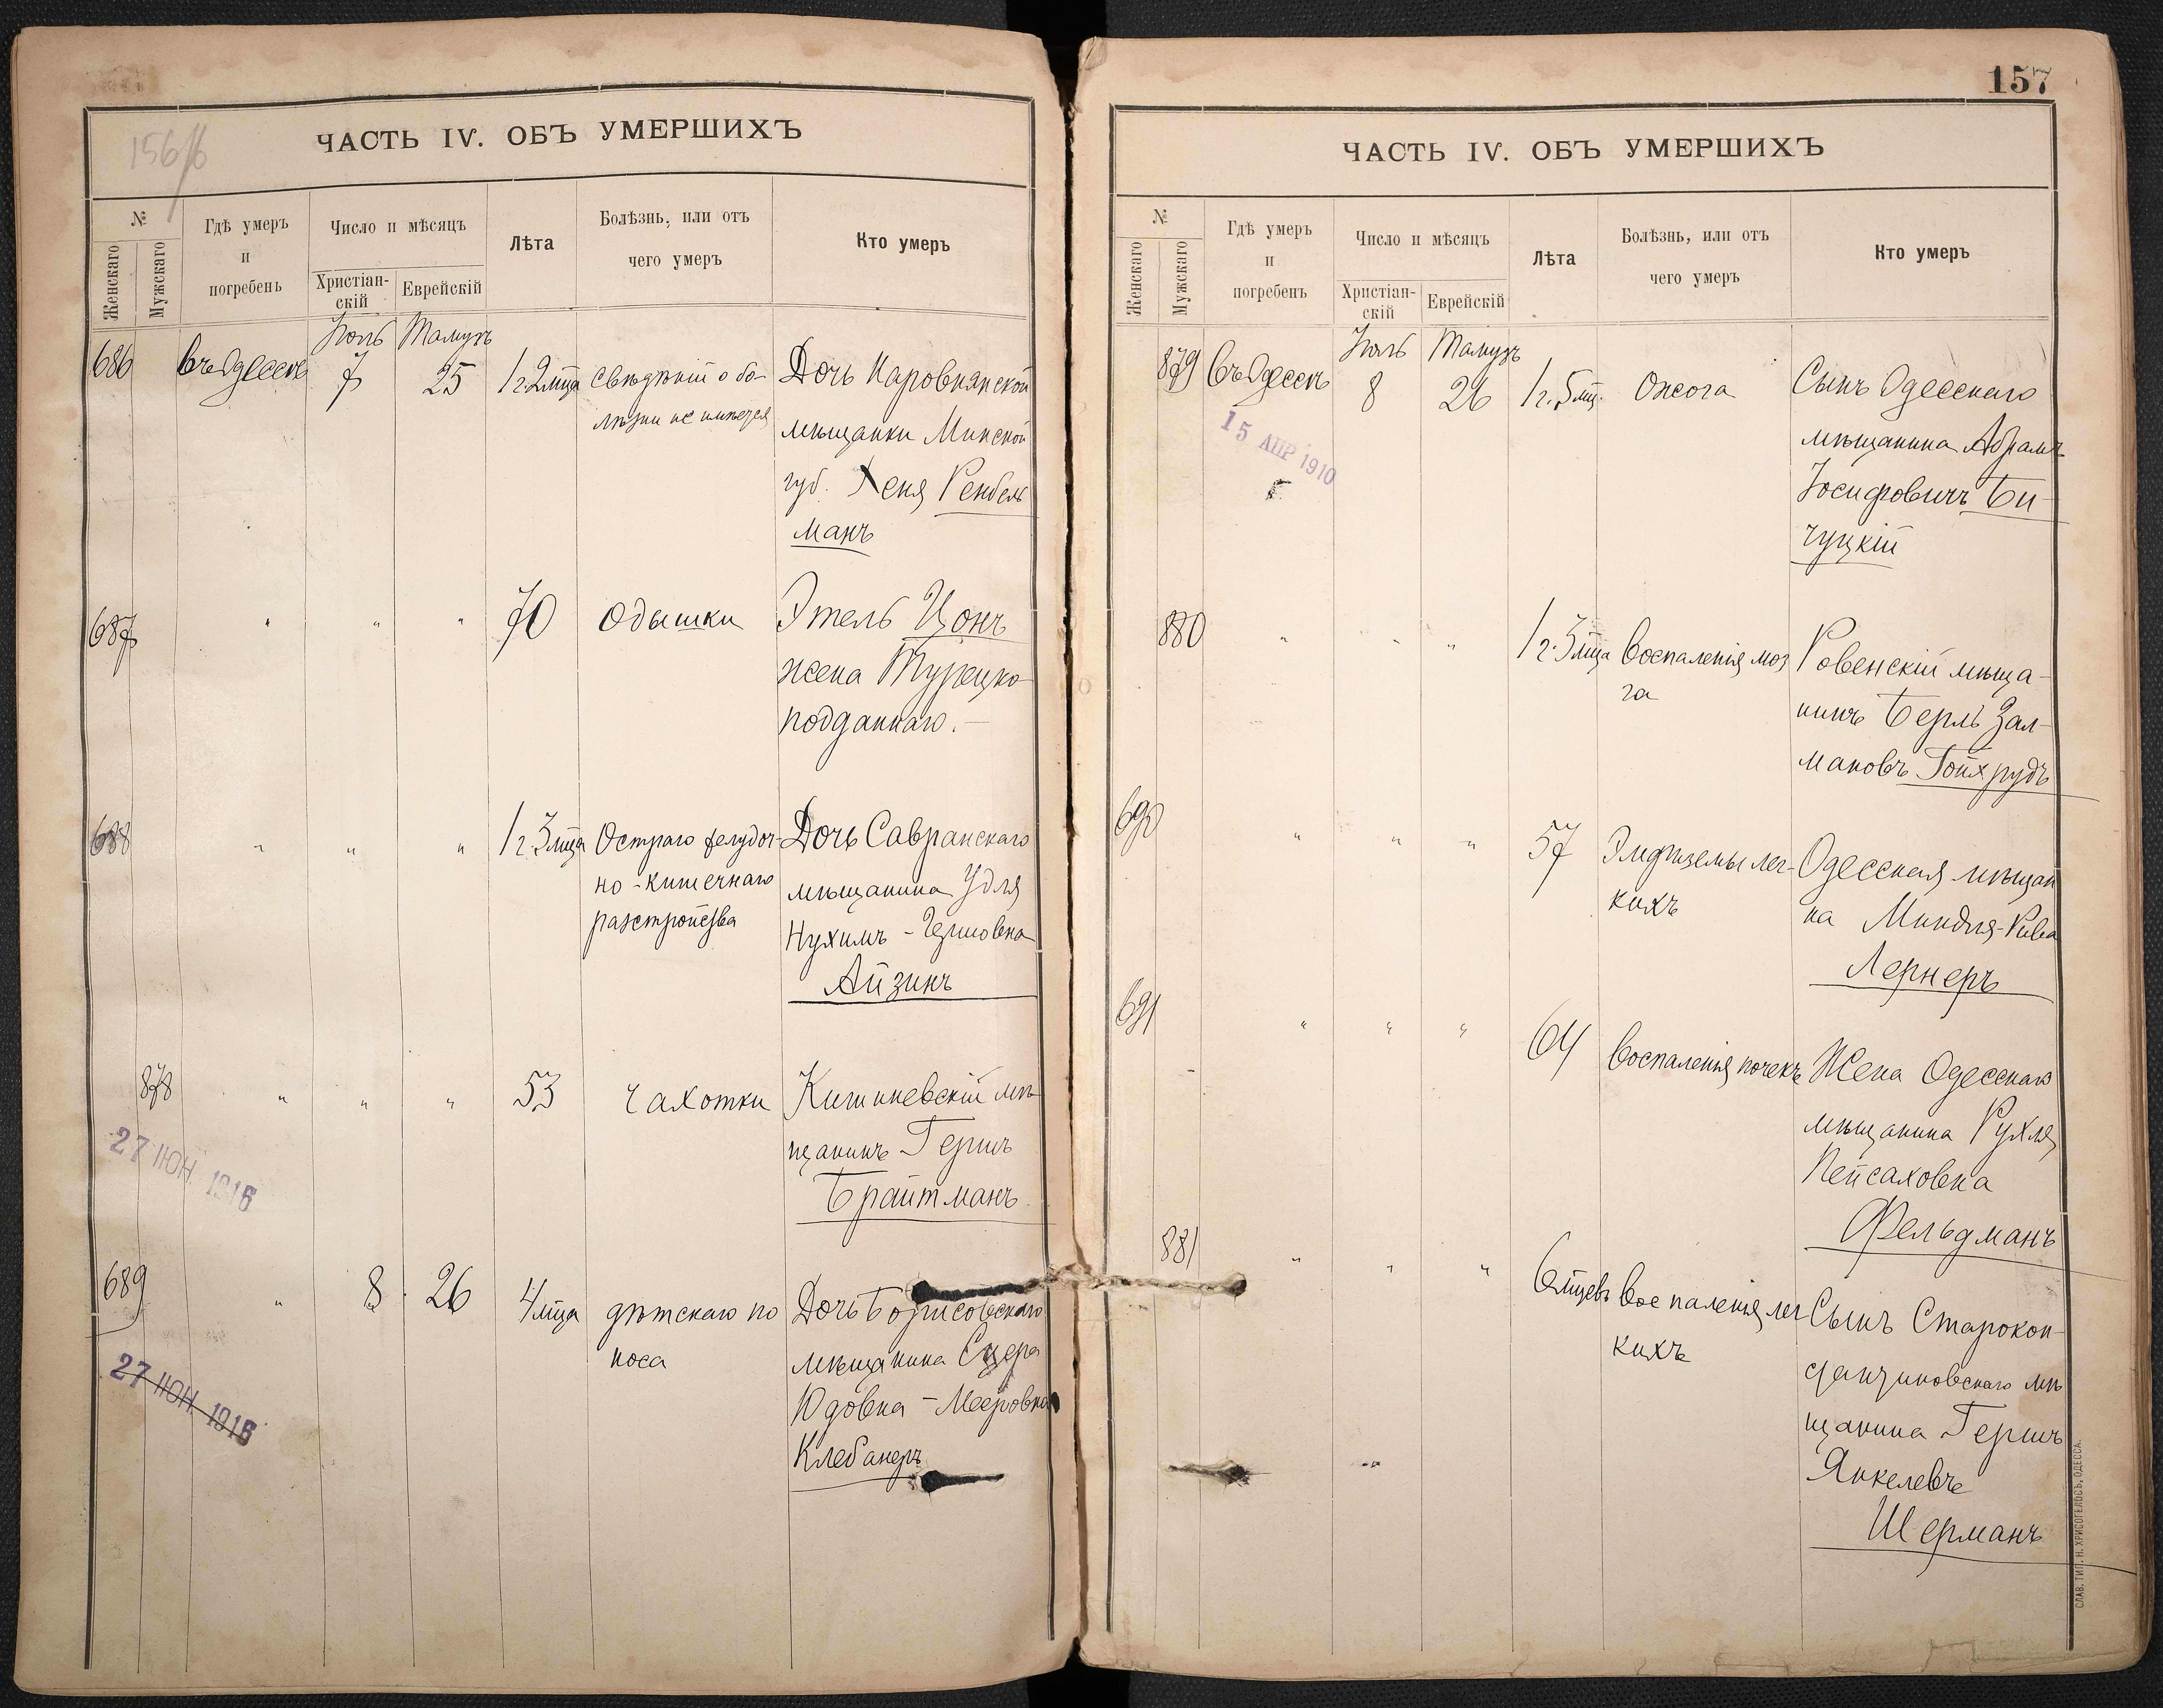 156/б
ЧАСТЬ IV. ОБЪ УМЕРШИХЪ
№
Женскаго
Мужскаго
Гдѣ умеръ
и
погребенъ
Число и мѣсяцъ
Христіан-
скій
Еврейскій
Лѣта
Болѣзнь, или отъ
чего умеръ
Кто умеръ
Іюль Тамузъ
686 Въ Одессѣ 7 25 1 г. 2 мца Свѣдѣній о бо-
лѣзни не имѣется
Дочь Наровлянской
мѣщанки Минской
губ. Хеня
манъ
687 " " " 70 Одышки
Этель Цонъ
жена Турецко
подданнаго.—
688 " " " 1 г. 3 мца Остраго желудоч-
но-кишечнаго
разстройства
Дочь Савранскаго
мѣщанина Удля
Нухимъ-Гершовна
Айзинъ
878 " " " 53 Чахотки
Кишиневскій мѣ-
щанинъ Гершъ
Брайтманъ
27 ІЮН. 1916
689 " 8 26 4 мца дѣтскаго по
носа
Дочь Борисовскаго
мѣщанина
Юдовна-Мееровна
Клебанеръ
27 ІЮН. 1916
157
ЧАСТЬ IV. ОБЪ УМЕРШИХЪ
№
Женскаго
Мужскаго
Гдѣ умеръ
и
погребенъ
Число и мѣсяцъ
Христіан-
скій
Еврейскій
Лѣта
Болѣзнь, или отъ
чего умеръ
Кто умеръ
Іюль Тамузъ
879 Въ Одессѣ 8 26 1 г. 5 мц. Ожога
15 АПР 1910
Сынъ Одесскаго
мѣщанина Абрамъ
Іосифовичъ Би-
чуцкій
880 " " " 1 г. 3 мца Воспаленія моз
га
Ровенскій мѣща-
нинъ Берль Зал-
мановъ Гойхрудъ
690 " " " 57 Эмфиземы лег-
кихъ
Одесская мѣщан
ка Миндля-Рива
Лернеръ
691 " " " 64 Воспаленія почекъ
Жена Одесскаго
мѣщанина Рухля
Пейсаховна
Фельдманъ
881 " " " 6 мцевъ Воспаленія лег
кихъ
Сынъ Старокон-
стантиновскаго мѣ
щанина Гершъ
Янкелевъ
Шерманъ
СЛАВ. ТИП. Н. ХРИСОГЕЛОСЪ, ОДЕССА.